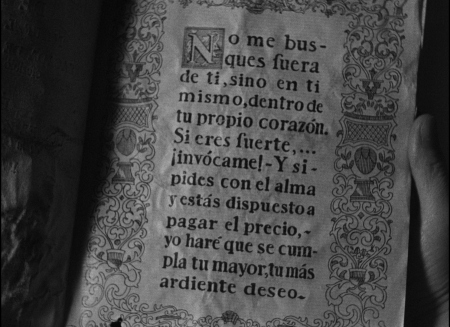 No me bus-
ques fuera
de ti, sino en ti
mismo, dentro de
tu propio corazón.
Si eres fuerte,...
¡invócame!-Y si-
pides con el alma
y estás dispuesto a
pagar el precio,-
yo haré que se cum-
pla tu mayor, tu más
ardiente deseo.